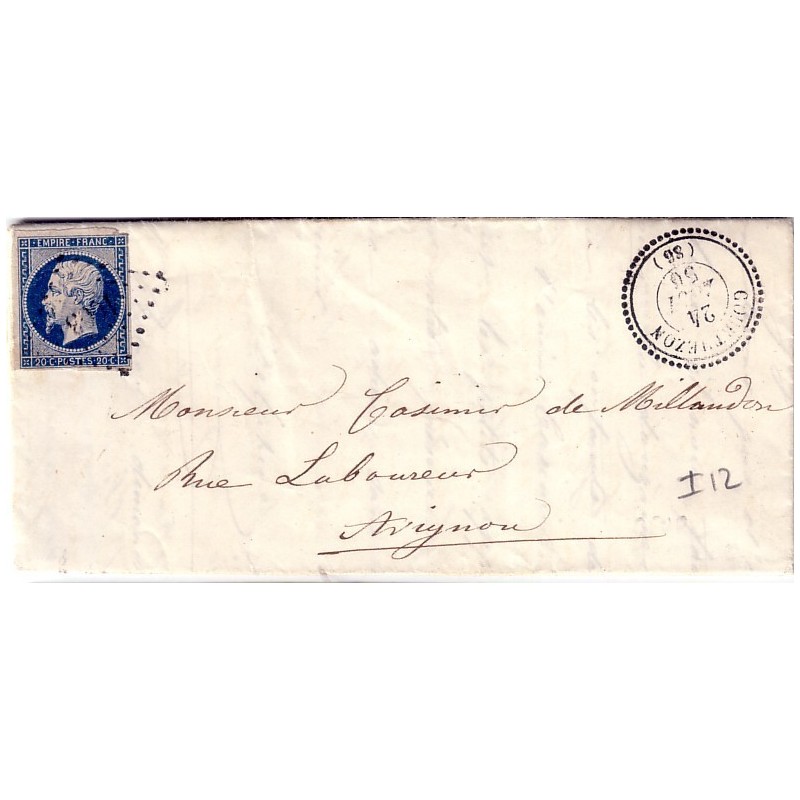 EMPIRE FRANC
20 C POSTES 20 C
COURTHEZON
24
56
(86)
Monsieur Casimir de Millaudon
Rue Laboureur
Avignon
I 12